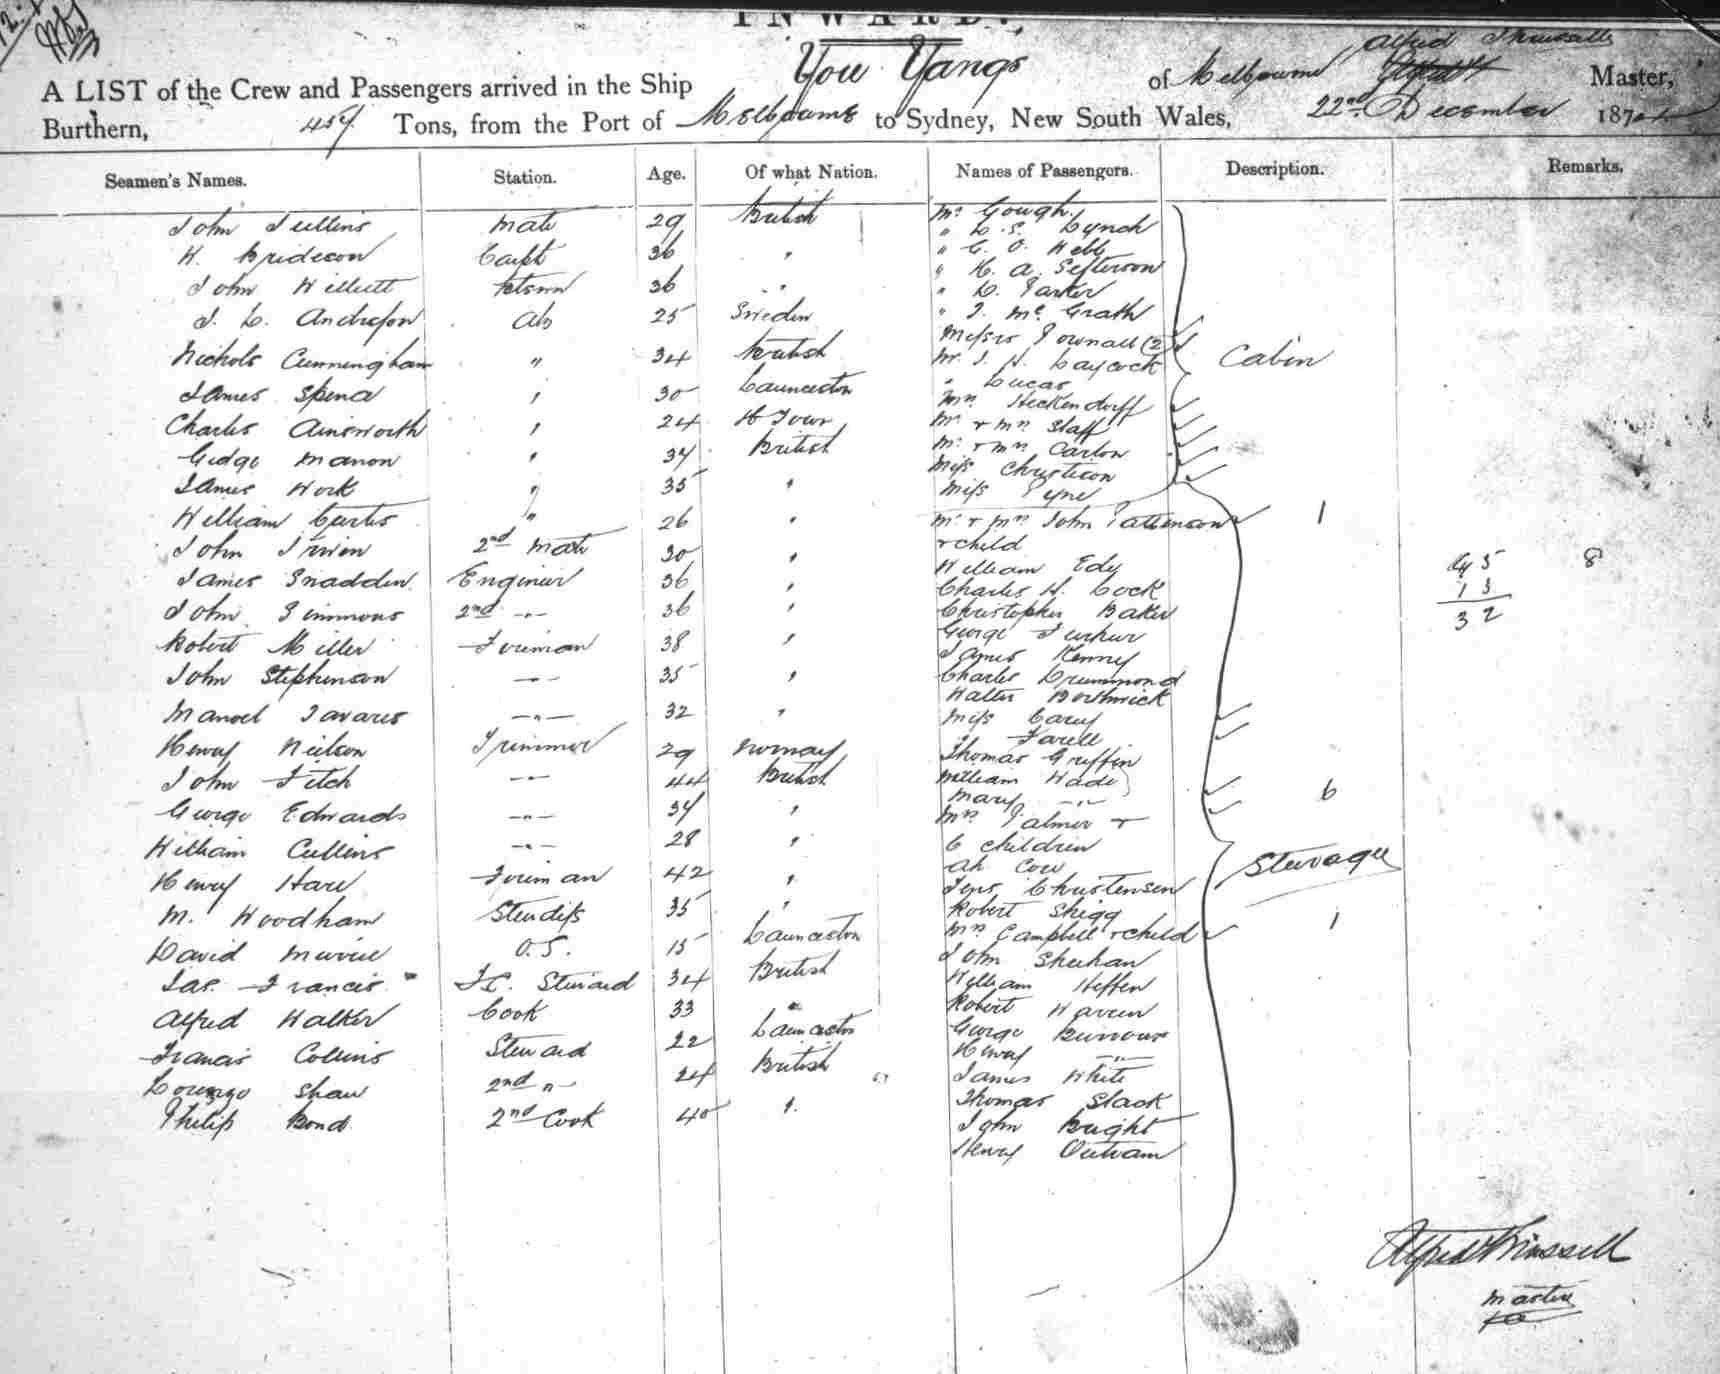 INWARD.
Alfred
A LIST of the Crew and Passengers arrived in the Ship You Yangs of Melbourne Master,
Burthern, 457 Tons, from the Port of Melbourne to Sydney, New South Wales, 22nd December 187
Seamen's Names. Station. Age. Of what Nation. Names of Passengers. Description. Remarks.
John Mate 29 British
H. 36 "
John 36 "
J. L. Andresson AB 25 Sweden
Nichols Cunningham " 34 British
James Spence " 30 Launceston
Charles Ainsworth " 24 H Town
Manon " 37 British
James Work " 35 "
William Curtis " 26 "
John Irwin 2nd Mate 30 "
James Snadden Engineer 36 "
John Simmons 2nd -"- 36 "
Robert Miller Fireman 38 "
John Stephenson -"- 35 "
Manoel Tavares -"- 32 "
Henry Neilson Trimmer 29 Norway
John Fitch -"- 44 British
George Edwards -"- 34 "
William Cullins -"- 28 "
Henry Hare Fireman 42 "
M. Woodham Stewdess 35 "
David O.S. 15 Launceston
Jas. Francis F.C. Steward 34 British
Alfred Walker Cook 33 "
Francis Collins Steward 22 Launceston
Lorenzo Shaw 2nd " 24 British
Philip Bond 2nd Cook 40 "
Mr Gough
" L. S. Lynch
" C. O. Webb
" H. A.
" L. Parker
" J. McGrath
Messrs Pownall (2)
Mr. J. H. Laycock
" Lucas
Mrs Heckendorff
Mr & Mrs Staff
Mr & Mrs Carlon
Miss Christison
Miss Pyne
Cabin
Mr & Mrs John Pattenson 1
& child
William Edy
Charles H. Cock
Christopher Baker
George
James Kenny
Charles Drummond
Walter Borthwick
Miss Carey
" Farell
Thomas Griffin
William Wade
Mary -"- 6
Mrs Palmer &
6 children
Ah Cow
Jens Christensen
Robert Shigg
Mrs Campbell & child 1
John Sheehan
William Heffen
Robert Warren
George
Henry -"-
James White
Thomas Slack
John Bright
Henry Outram
Steerage
45 8
13
32
Alfred Thrussell
Master